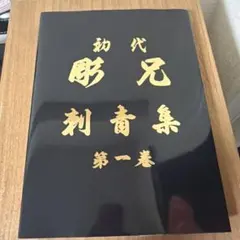 初代
彫兄
刺青集
第一巻